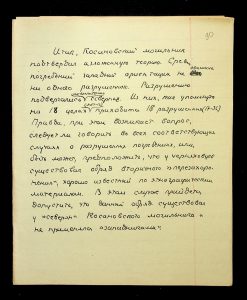 90
Итак, Косановский могильник
подтвердил изложенную теорию. Среди
погребений западной ориентации не
ни одно разрушенное. Разрушению
подвергались северные. Из них, как упомянуто
на 18 целых приходится 18 разрушенных
Правда, при этом возникает вопрос,
следует ли говорить во всех соответствующих
случаях о разрушении погребения, или,
быть может, предположить, что у черняховцев
существовал обряд вторичного перезахоро-
нения, хорошо известный по этнографическим
материалам. В этом случае придется
допустить, что данный обряд существовал
у "северян" Косановского могильника и
не применялся "западниками".